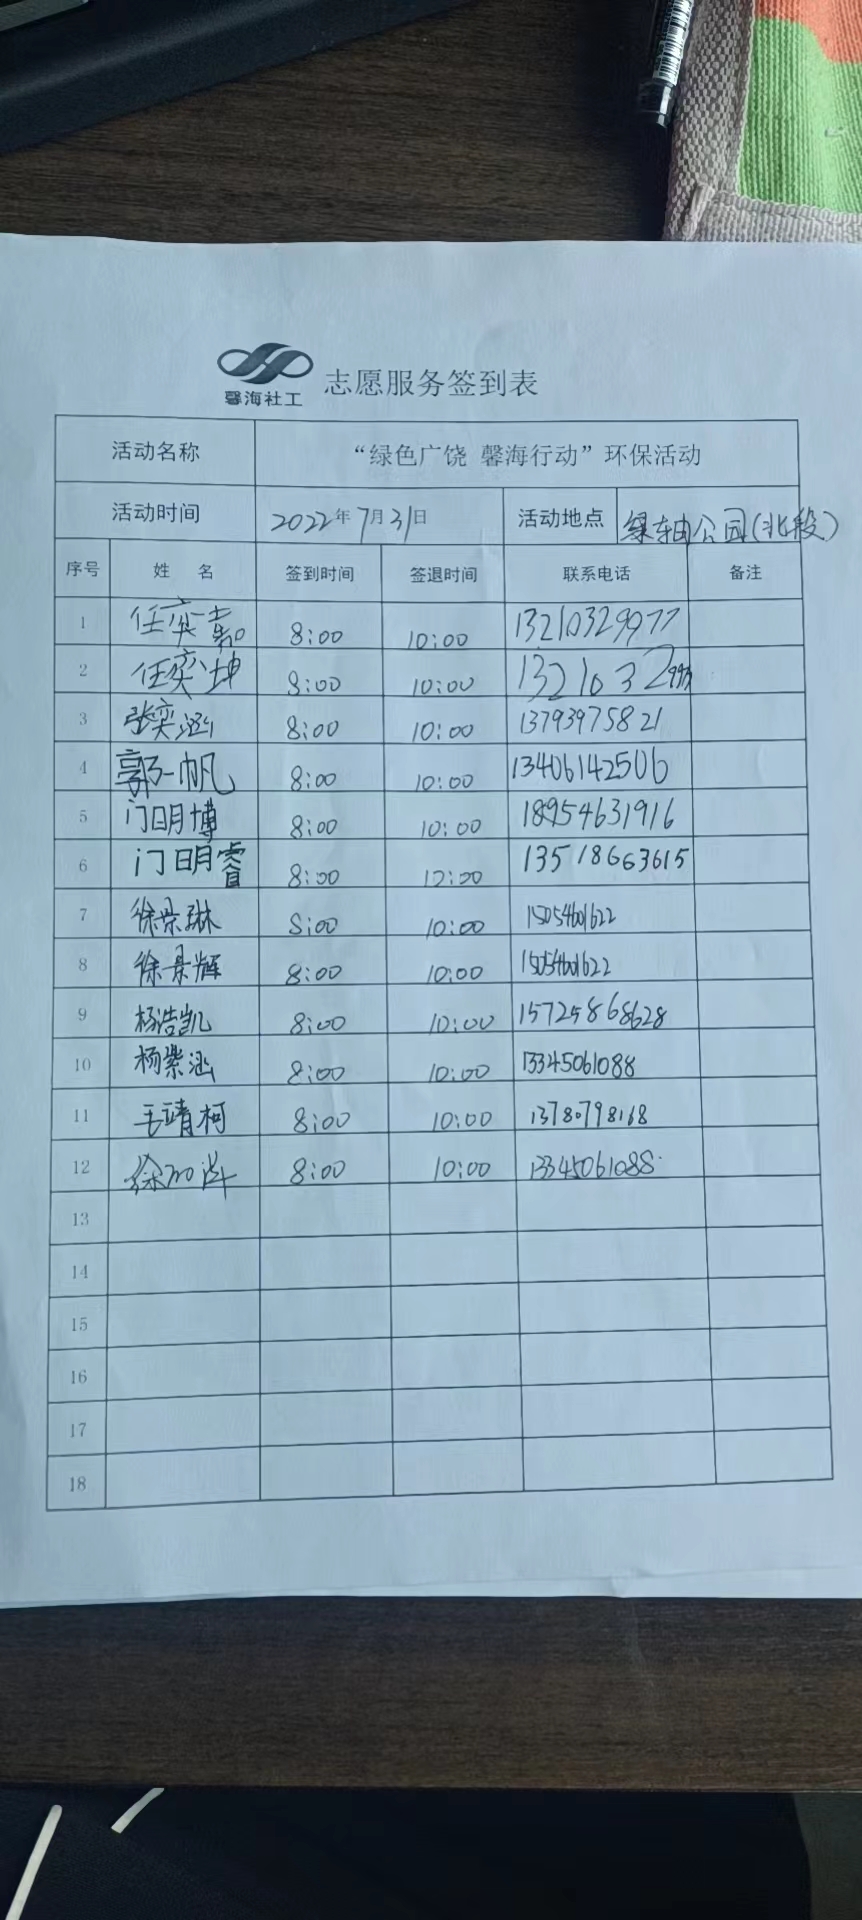 馨海社工
志愿服务签到表
活动名称 “绿色广饶 馨海行动”环保活动
活动时间 2022年7月31日 活动地点 绿轴公园(北段)
序号 姓 名 签到时间 签退时间 联系电话 备注
1 任奕嘉 8:00 10:00 13210329977
2 任奕坤 8:00 10:00 1321032
3 张奕涵 8:00 10:00 13793975821
4 郭一帆 8:00 10:00 13406142506
5 门明博 8:00 10:00 18954631916
6 门明睿 8:00 10:00 13518663615
7 徐景琳 8:00 10:00 15054601622
8 徐景辉 8:00 10:00 15054601622
9 杨浩凯 8:00 10:00 15725868628
10 杨紫涵 8:00 10:00 13345061088
11 毛靖柯 8:00 10:00 13780798168
12 8:00 10:00 13345061088
13
14
15
16
17
18